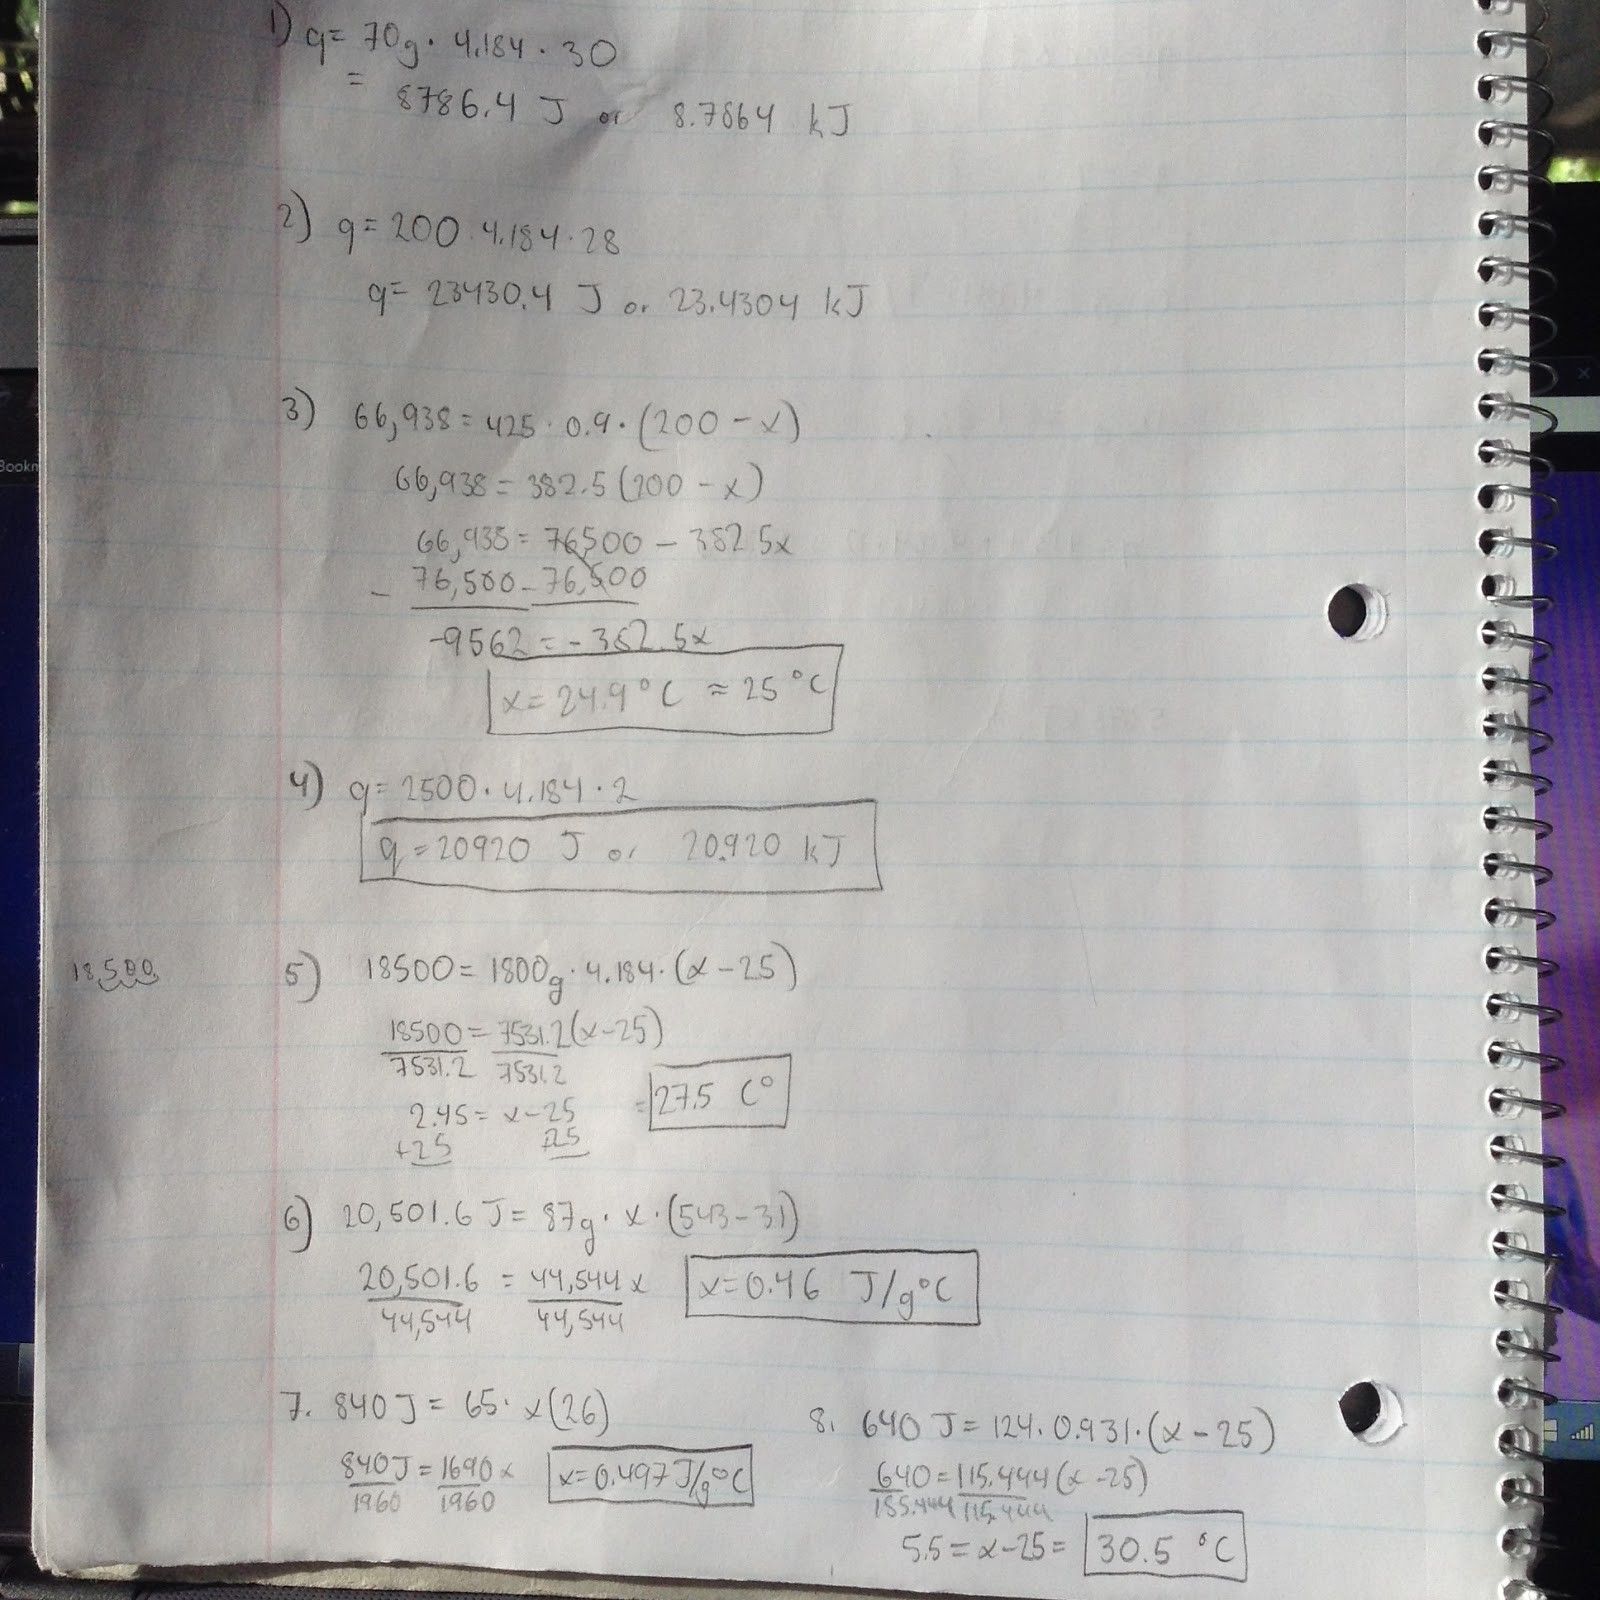 1) q = 70g · 4.184 · 30
= 8786.4 J or 8.7864 kJ
2) q = 200 · 4.184 · 28
q = 23430.4 J or 23.4304 kJ
3) 66,938 = 425 · 0.9 · (200 - x)
66,938 = 382.5 (200 - x)
66,938 = 76,500 - 382.5x
- 76,500 - 76,500
-9562 = -382.5x
x = 24.9 °C ≈ 25 °C
4) q = 2500 · 4.184 · 2
q = 20920 J or 20.920 kJ
18,500
5) 18500 = 1800g · 4.184 · (x - 25)
18500 = 7531.2 (x - 25)
7531.2 7531.2
2.45 = x - 25 = 27.5 C°
+25 +25
6) 20,501.6 J = 87g · x · (543 - 31)
20,501.6 = 44,544 x x = 0.46 J/g°C
44,544 44,544
7. 840 J = 65 · x (26)
840 J = 1690 x x = 0.497 J/g°C
1960 1960
8. 640 J = 124 · 0.931 · (x - 25)
640 = 115.444 (x - 25)
185.444 115.444
5.5 = x - 25 = 30.5 °C
Bookm